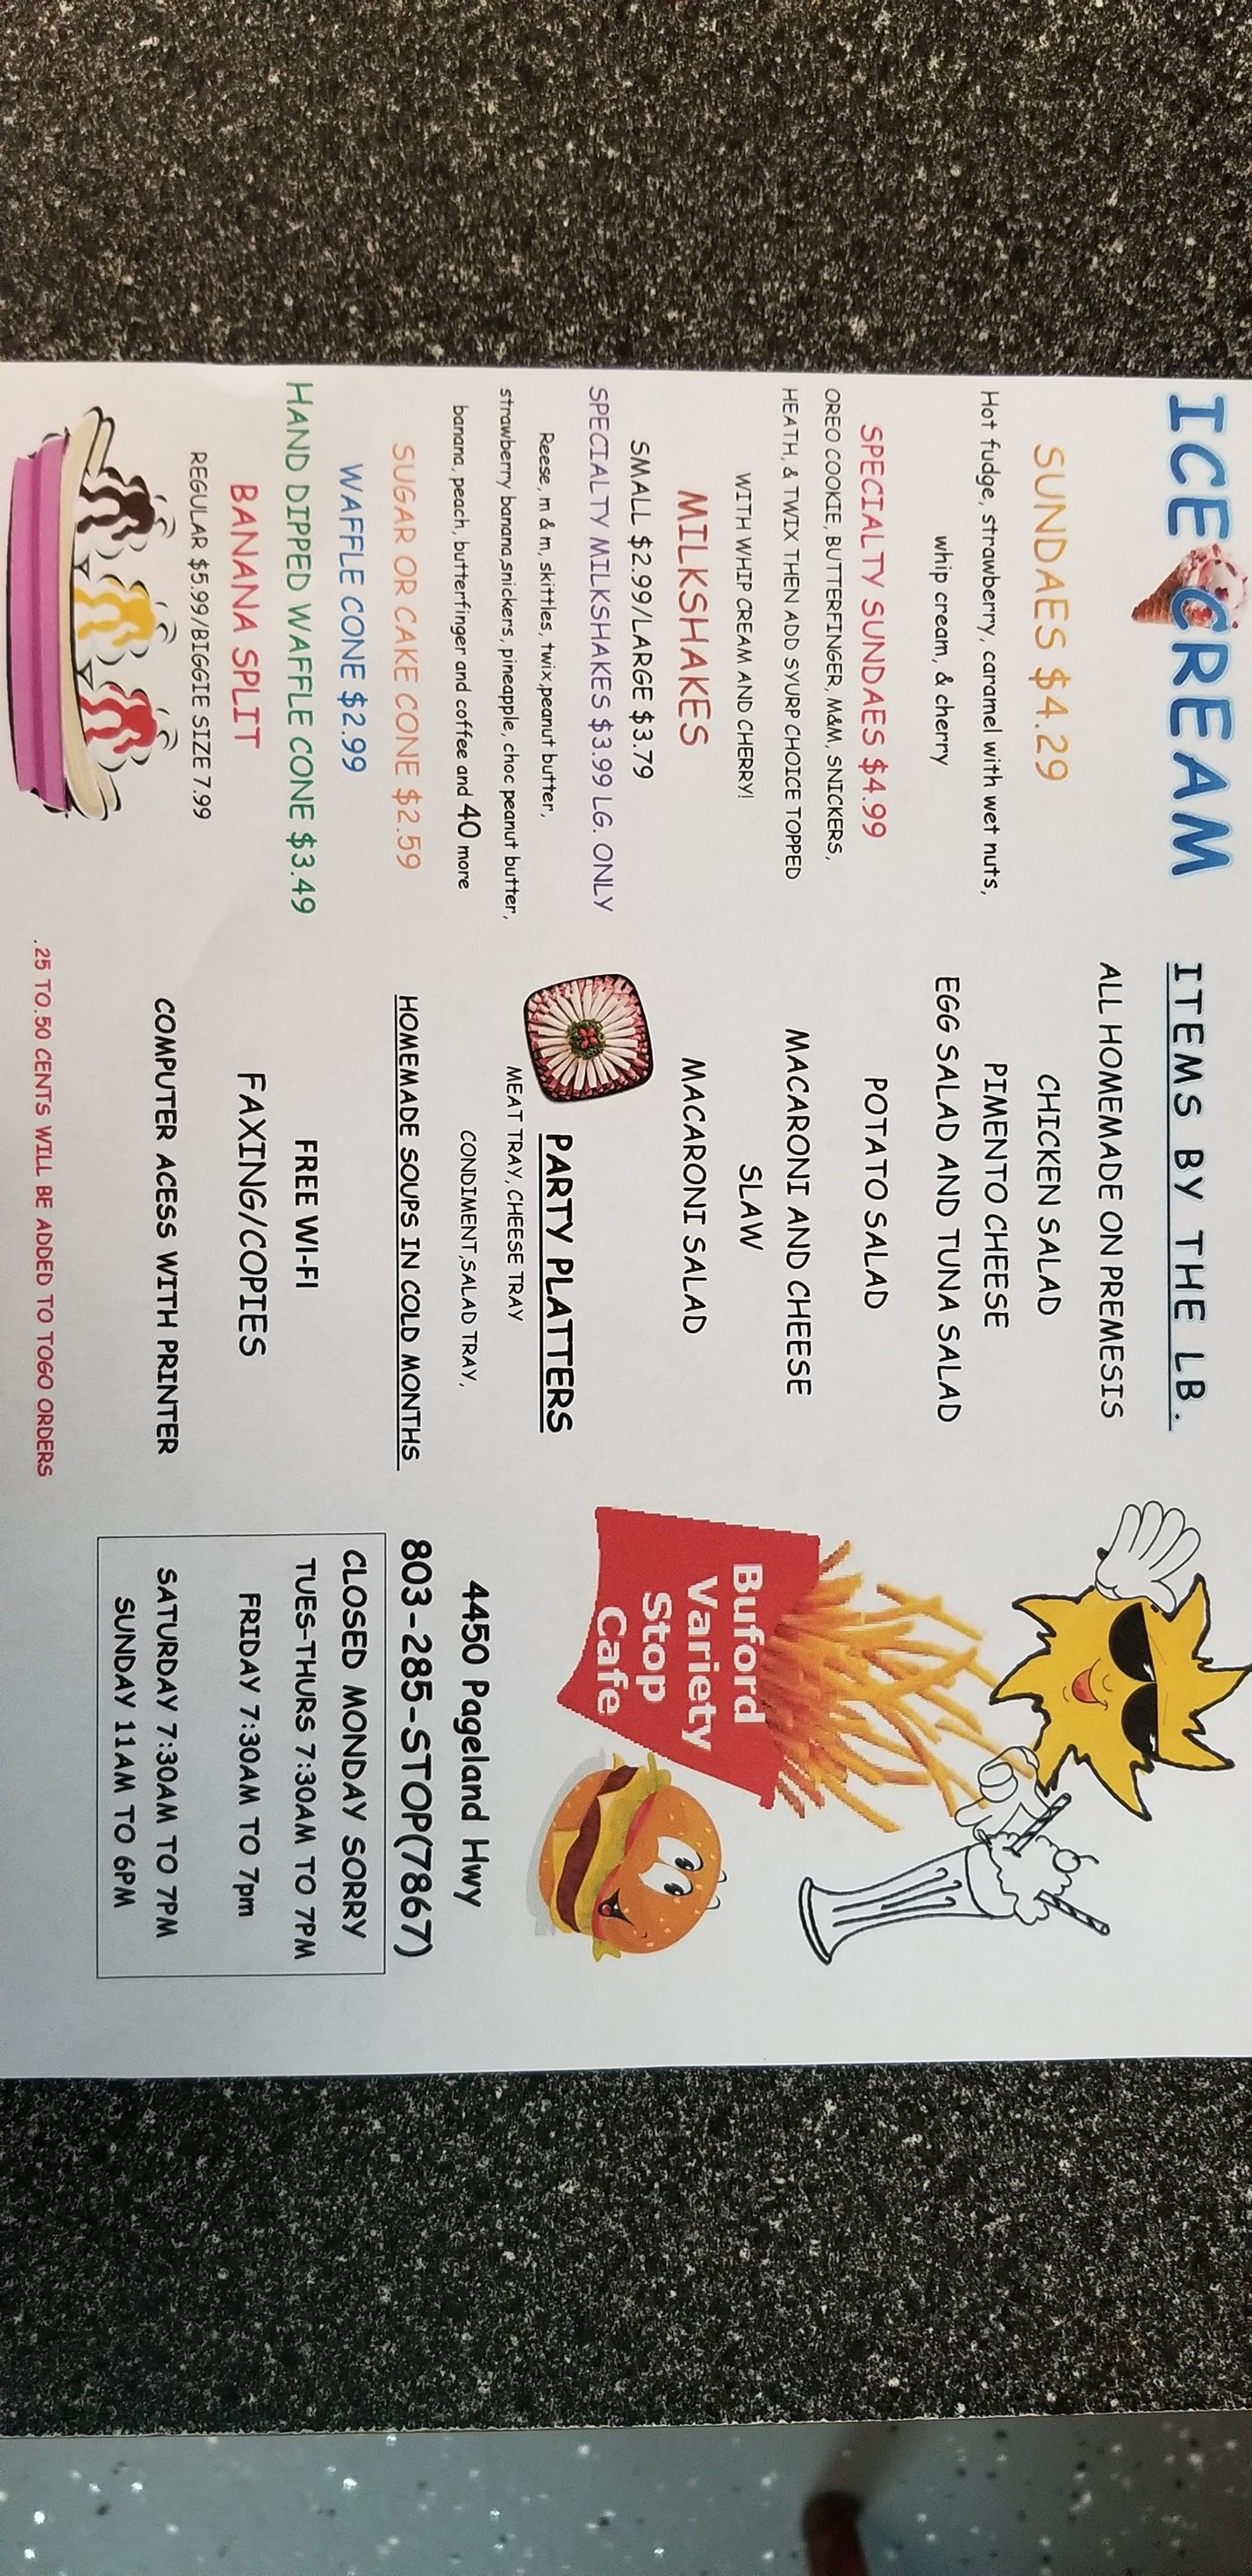 ICE CREAM
SUNDAES $4.29
Hot fudge, strawberry, caramel with wet nuts,
whip cream, & cherry
SPECIALTY SUNDAES $4.99
OREO COOKIE, BUTTERFINGER, M&M, SNICKERS,
HEATH, & TWIX THEN ADD SYURP CHOICE TOPPED
WITH WHIP CREAM AND CHERRY!
MILKSHAKES
SMALL $2.99/LARGE $3.79
SPECIALTY MILKSHAKES $3.99 LG. ONLY
Reese, m & m, skittles, twix,peanut butter,
strawberry banana,snickers, pineapple, choc peanut butter,
banana, peach, butterfinger and coffee and 40 more
SUGAR OR CAKE CONE $2.59
WAFFLE CONE $2.99
HAND DIPPED WAFFLE CONE $3.49
BANANA SPLIT
REGULAR $5.99/BIGGIE SIZE 7.99
ITEMS BY THE LB.
ALL HOMEMADE ON PREMESIS
CHICKEN SALAD
PIMENTO CHEESE
EGG SALAD AND TUNA SALAD
POTATO SALAD
MACARONI AND CHEESE
SLAW
MACARONI SALAD
PARTY PLATTERS
MEAT TRAY, CHEESE TRAY
CONDIMENT,SALAD TRAY,
HOMEMADE SOUPS IN COLD MONTHS
FREE WI-FI
FAXING/COPIES
COMPUTER ACESS WITH PRINTER
.25 TO.50 CENTS WILL BE ADDED TO TOGO ORDERS
Buford
Variety
Stop
Cafe
4450 Pageland Hwy
803-285-STOP(7867)
CLOSED MONDAY SORRY
TUES-THURS 7:30AM TO 7PM
FRIDAY 7:30AM TO 7pm
SATURDAY 7:30AM TO 7PM
SUNDAY 11AM TO 6PM